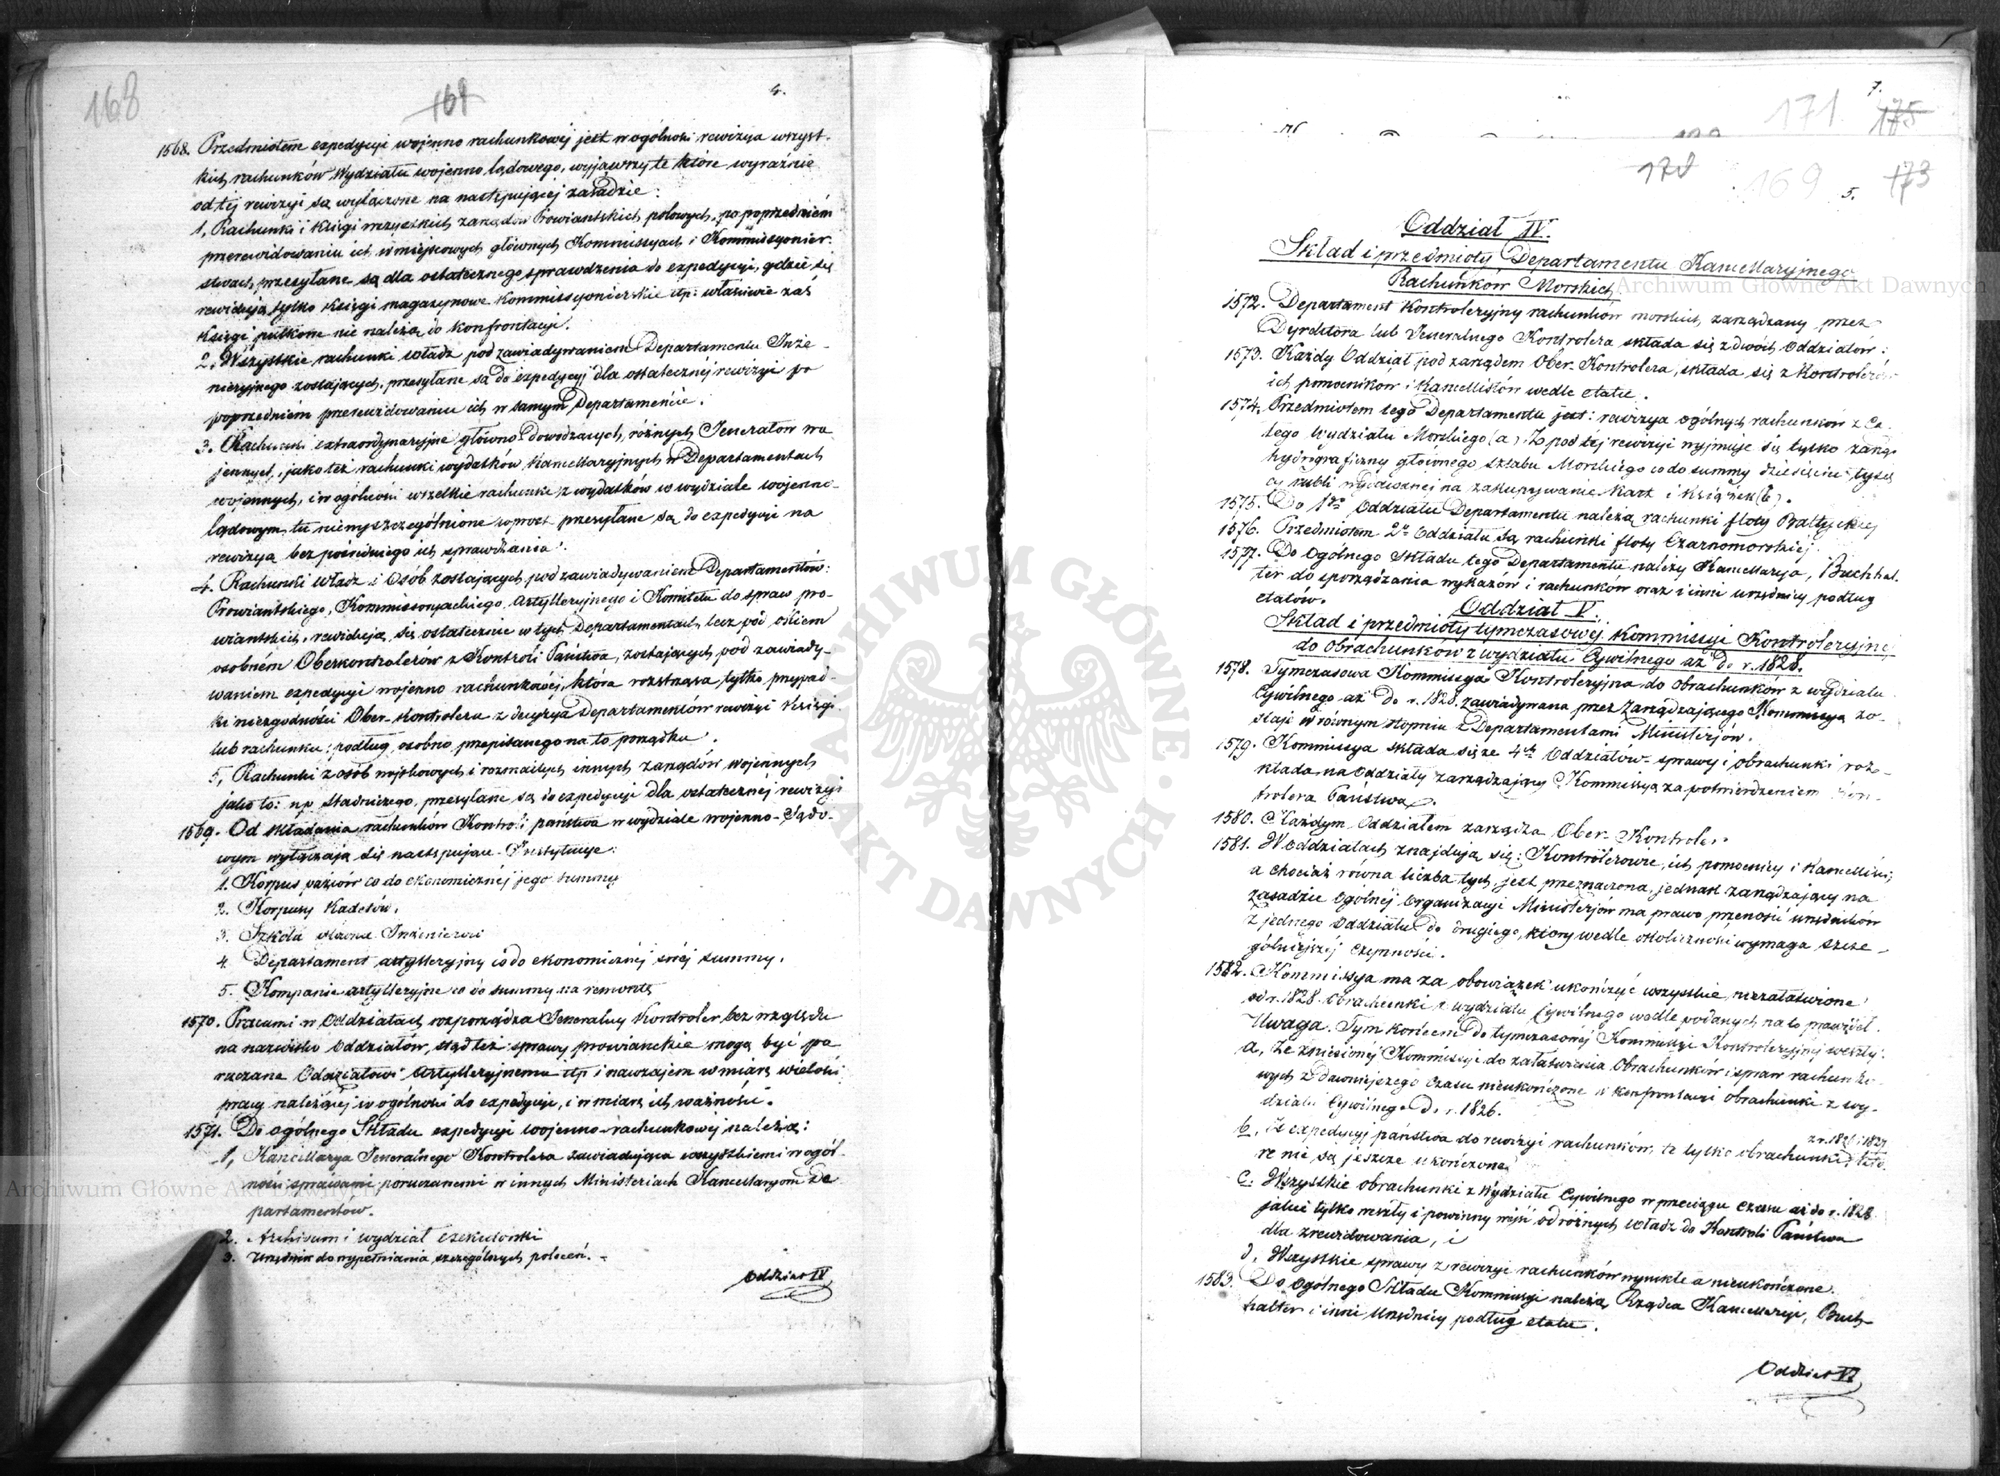 168
168
4.
1568. Przedmiotem expedycyi wojenno rachunkowej jest w ogólności rewizya wszyst-
kich rachunków Wydziału wojenno lądowego, wyjąwszy te które wyraźnie
od tej rewizyi są wyłączone na następującej zasadzie:
1, Rachunki i księgi wszystkich zarządów Prowiantskich polowych, po poprzedniém
przerewidowaniu ich w miejscowych głównych Kommissyach i Kommissyonier-
stwach, przesyłane są dla ostatecznego sprawdzenia do expedycyi, gdzie się
rewidują tylko księgi magazynowe Kommissyonierskie itp: właściwie zaś
księgi pułkowe nie należą do konfrontacyi.
2, Wszystkie rachunki władz pod zawiadywaniem Departamentu Inże-
nieryjnego zostających, przesyłane są do expedycyi dla ostatecznej rewizyi po
poprzedniem przerewidowaniu ich w samym Departamencie.
3. Rachunki extraordynaryjne główno-dowodzących, różnych Jenerałów wo
jennych, jako też rachunki wydatków Kancellaryjnych w Departamentach
wojennych, i w ogólności wszelkie rachunki z wydatków w wydziale wojenno-
lądowym, tu niewyszczególnione wprost przesyłane są do expedycyi na
rewizyą bez pośredniego ich sprawdzania.
4. Rachunki władz i Osób zostających pod zawiadywaniem Departamentów:
Prowiantskiego, Kommissoryackiego, Artylleryjnego i Komitetu do spraw pro-
wiantskich, rewidują się ostatecznie w tych Departamentach, lecz pod okiem
osobném Oberkontrolerów z Kontroli Państwa, zostających pod zawiady-
waniem expedycyi wojenno rachunkowej, która rozstrząsa tylko przypad-
ki niezgodności Ober-Kontrolera z decyzyą Departamentów rewizyi księgi
lub rachunku; podług osobno przepisanego na to porządku.
5, Rachunki z osób wojskowych i rozmaitych innych zarządów wojennych
jako to: np. Stadniczego, przesyłane są do expedycyi dla ostatecznej rewizyi
1569. Od składania rachunków Kontroli państwa w wydziale wojenno-Lądo-
wym wyłączają się następujące Instytucye:
1. Korpus paziów co do ekonomicznej jego summy
2. Korpusy Kadetów.
3. Szkoła Inżenierów
4. Departament artylleryjny co do ekonomicznej swej summy.
5. Kompanie artylleryjne co do summy na remontę
1570. Pracami w Oddziałach rozporządza Jeneralny Kontroler bez względu
na nazwisko Oddziałów, stąd też sprawy prowianckie mogą być po
ruczane Oddziałowi Artylleryjnemu itp i nawzajem w miarę wielości
pracy należącej w ogólności do expedycyi, i w miarę ich ważności.
1571. Do ogólnego Składu expedycyi wojenno-rachunkowej należą:
1, Kancellarya Jeneralnego Kontrolera zawiadująca wszystkiemi w ogól-
ności sprawami poruczanemi w innych Ministeriach Kancellaryom De
partamentów.
2. Archiwum i wydział exekutorski
3. Urzędnik do wypełniania szczególnych poleceń. -
Oddział IV
7.
171
175
178
169
5.
173
Oddział IV.
Skład i przedmioty Departamentu Kancellaryjnego
Rachunków Morskich
1572. Departament Kontroleryjny rachunków morskich, zarządzany przez
Dyrektora lub Jeneralnego Kontrolera składa się z dwóch Oddziałów:
1573. Każdy Oddział pod zarządem Ober-Kontrolera, składa się z Kontrolerów
ich pomocników i Kancellistów wedle etatu.
1574. Przedmiotem tego Departamentu jest: rewizya ogólnych rachunków z Ca-
łego Wydziału Morskiego (a). Z pod tej rewizyi wyjmuje się tylko zarząd
hydrograficzny głównego sztabu Morskiego co do summy dziesięciu tysię
cy rubli wyznaczonej na zakupywanie Kart i Książek (b).
1575. Do 1go Oddziału Departamentu należą rachunki floty Bałtyckiej
1576. Przedmiotem 2o Oddziału są rachunki floty Czarnomorskiej
1577. Do Ogólnego składu tego Departamentu należy Kancellarya, Buchhal-
ter do sporządzania wykazów i rachunków oraz i inni urzędnicy podług
etatów.
Oddział V.
Skład i przedmioty tymczasowej Kommissyi Kontroleryjnej
do Obrachunków z wydziału Cywilnego aż do r. 1828.
1578. Tymczasowa Kommissya Kontroleryjna do Obrachunków z wydziału
Cywilnego aż do r. 1828. zawiadywana przez Zarządzającego Kommissyą zo-
staje w równym stopniu z Departamentami Ministerjów.
1579. Kommissya składa się ze 4ch Oddziałów - sprawy i obrachunki roz-
kłada na Oddziały zarządzający Kommissyą za potwierdzeniem Kon-
trolera Państwa.
1580. Każdym Oddziałem zarządza Ober-Kontroler
1581. W oddziałach znajdują się: Kontrolerowie, ich pomocnicy i Kancelliści,
a chociaż równa liczba tych, jest przeznaczona, jednak zarządzający na
zasadzie Ogólnej Organizacyi Ministerjów ma prawo przenosić urzędników
z jednego Oddziału do drugiego, który wedle okoliczności wymaga szcze-
gólniejszej czynności.
1582. Kommissya ma za obowiązek ukończyć wszystkie, niezałatwione
od r. 1828. obrachunki z wydziału Cywilnego wedle podanych na to prawideł.
Uwaga. Tym końcem do tymczasowej Kommissyi Kontroleryjnej weszły:
a, Ze zniesionej Kommissyi do załatwienia Obrachunków i spraw rachunko-
wych z dawniejszego czasu nieukończone w konfrontacyi obrachunki z wy-
działu Cywilnego do r. 1826.
b, Z expedycyi państwa do rewizyi rachunków, te tylko obrachunki z r. 1826 i 1827 któ
re nie są jeszcze ukończone
c. Wszystkie obrachunki z Wydziału Cywilnego w przeciągu czasu aż do r. 1828
jakie tylko weszły i powinny wejść od różnych władz do Kontroli Państwa
dla zrewidowania, i
d, Wszystkie sprawy z rewizyi rachunków wynikłe a nieukończone.
1583. Do Ogólnego Składu Kommissyi należą Rządca Kancellaryi, Buch-
halter i inni Urzędnicy podług etatu.
Oddział VI
Archiwum Główne Akt Dawnych
Archiwum Główne Akt Dawnych
ARCHIWUM GŁÓWNE AKT DAWNYCH